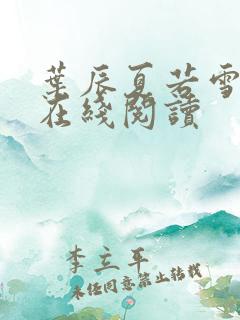 葉辰夏若雪
在綫閱讀
李立平
未經同意禁止轉載